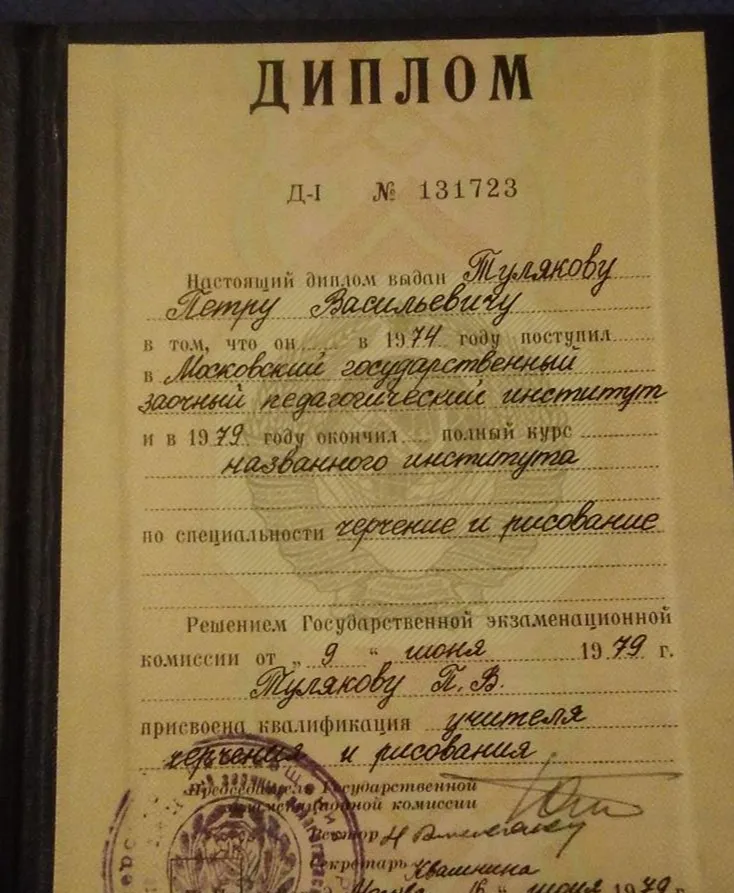 ДИПЛОМ
Д-I № 131723
Настоящий диплом выдан Тулякову
Петру Васильевичу
в том, что он в 1974 году поступил
в Московский государственный
заочный педагогический институт
и в 1979 году окончил полный курс
названного института
по специальности черчение и рисование
Решением Государственной экзаменационной
комиссии от „ 9 “ июня 1979 г.
Тулякову П. В.
присвоена квалификация учителя
черчения и рисования
Председатель Государственной
экзаменационной комиссии
Ректор
Секретарь Квамнина
июня 1979 г.